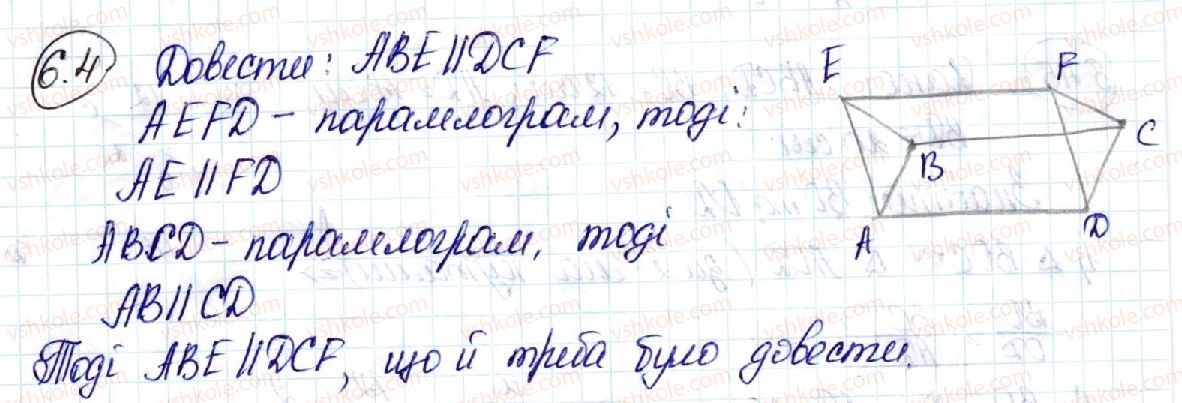 6.4 Довести: ABE || DCF
AEFD - паралелограм, тоді:
AE || FD
ABCD - паралелограм, тоді
AB || CD
Тоді ABE || DCF, що й треба було довести.
E F
C
B
A D